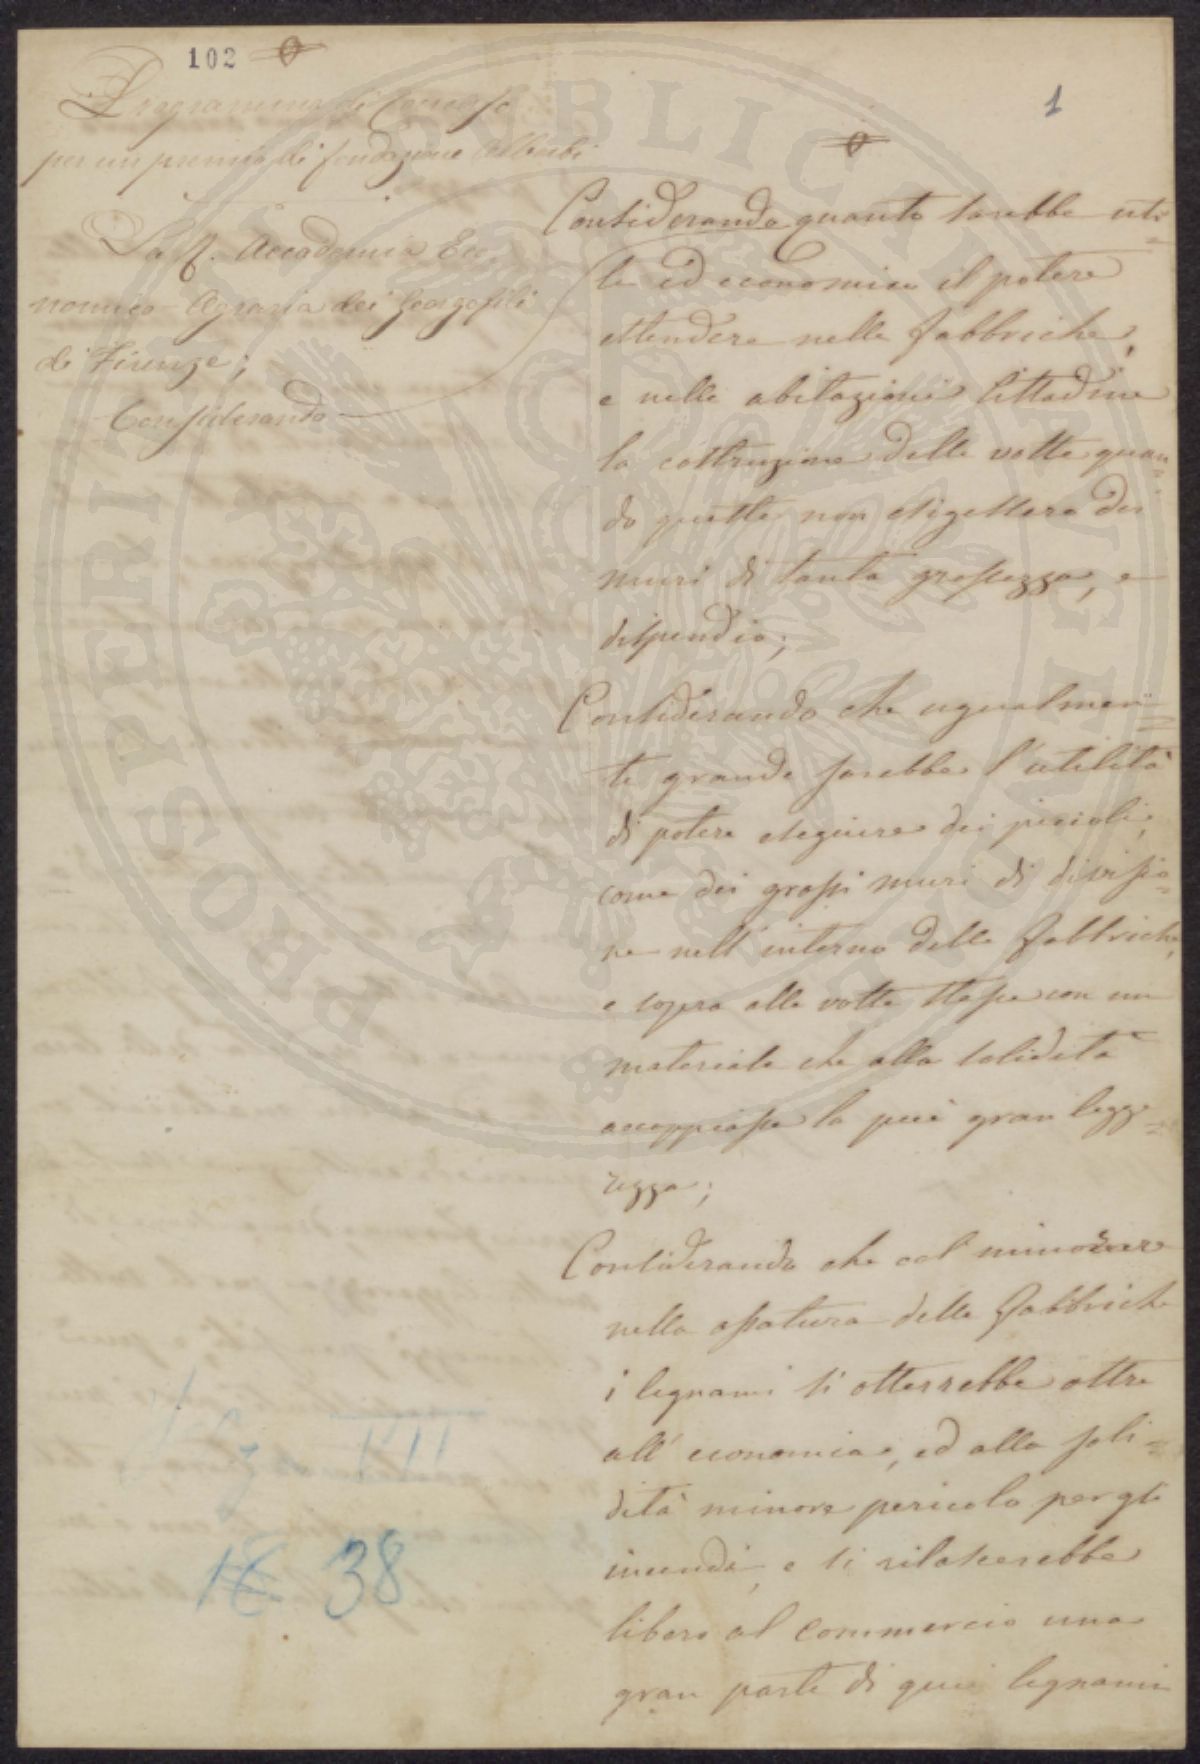 102
1
Programma di Concorso
per un premio di fondazione Alberti
La R. Accademia Eco
nomico-Agraria dei Georgofili
di Firenze;
Considerando
Considerando quanto sarebbe uti=
le ed economico il potere
estendere nelle fabbriche,
e nelle abitazioni Cittadine
la costruzione delle volte quan=
do queste non esigessero dei
muri di tanta grossezza, e
dispendio;
Considerando che ugualmen=
te grande sarebbe l'utilità
di potere eseguire dei piccoli,
come dei grossi muri di divisio=
ne nell'interno delle fabbriche,
e sopra alle volte stesse con un
materiale che alla solidità
accoppiasse la più gran legge=
rezza;
Considerando che col minorare
nella ossatura delle fabbriche
i legnami si otterrebbe oltre
all'economia, ed alla soli=
dità minore pericolo per gli
incendi, e si rilascerebbe
libero al commercio una
gran parte di quei legnami
III
18 38
PROSPERITATI PUBLICAE AUGENDAE